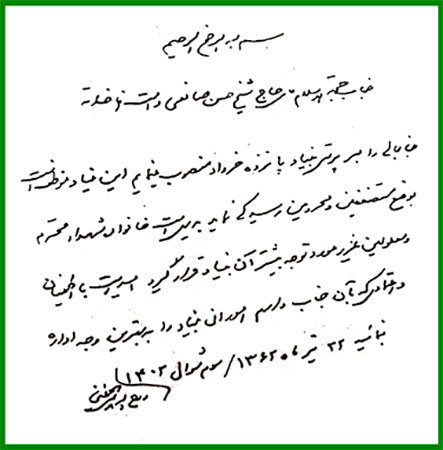 بسم الله الرحمن الرحیم
جناب حجة الاسلام آقای حاج شیخ حسن صانعی دامت افاضاته
جنابعالی را به سرپرستی بنیاد پانزده خرداد منصوب مینمایم این بنیاد موظف است
بوضع مستضعفین و محرومین رسیدگی نماید بدیهی است خانواده شهداء محترم
و معلولین عزیز مورد توجه بیشتر آن بنیاد قرار گیرد امید است با اطمینان
و اعتمادی که بآن جناب دارم امور آن بنیاد را به بهترین وجه اداره
نمائید ۲۲ تیر ماه ۱۳۶۲ / سوم شوال ۱۴۰۳
روح الله الموسوی الخمینی